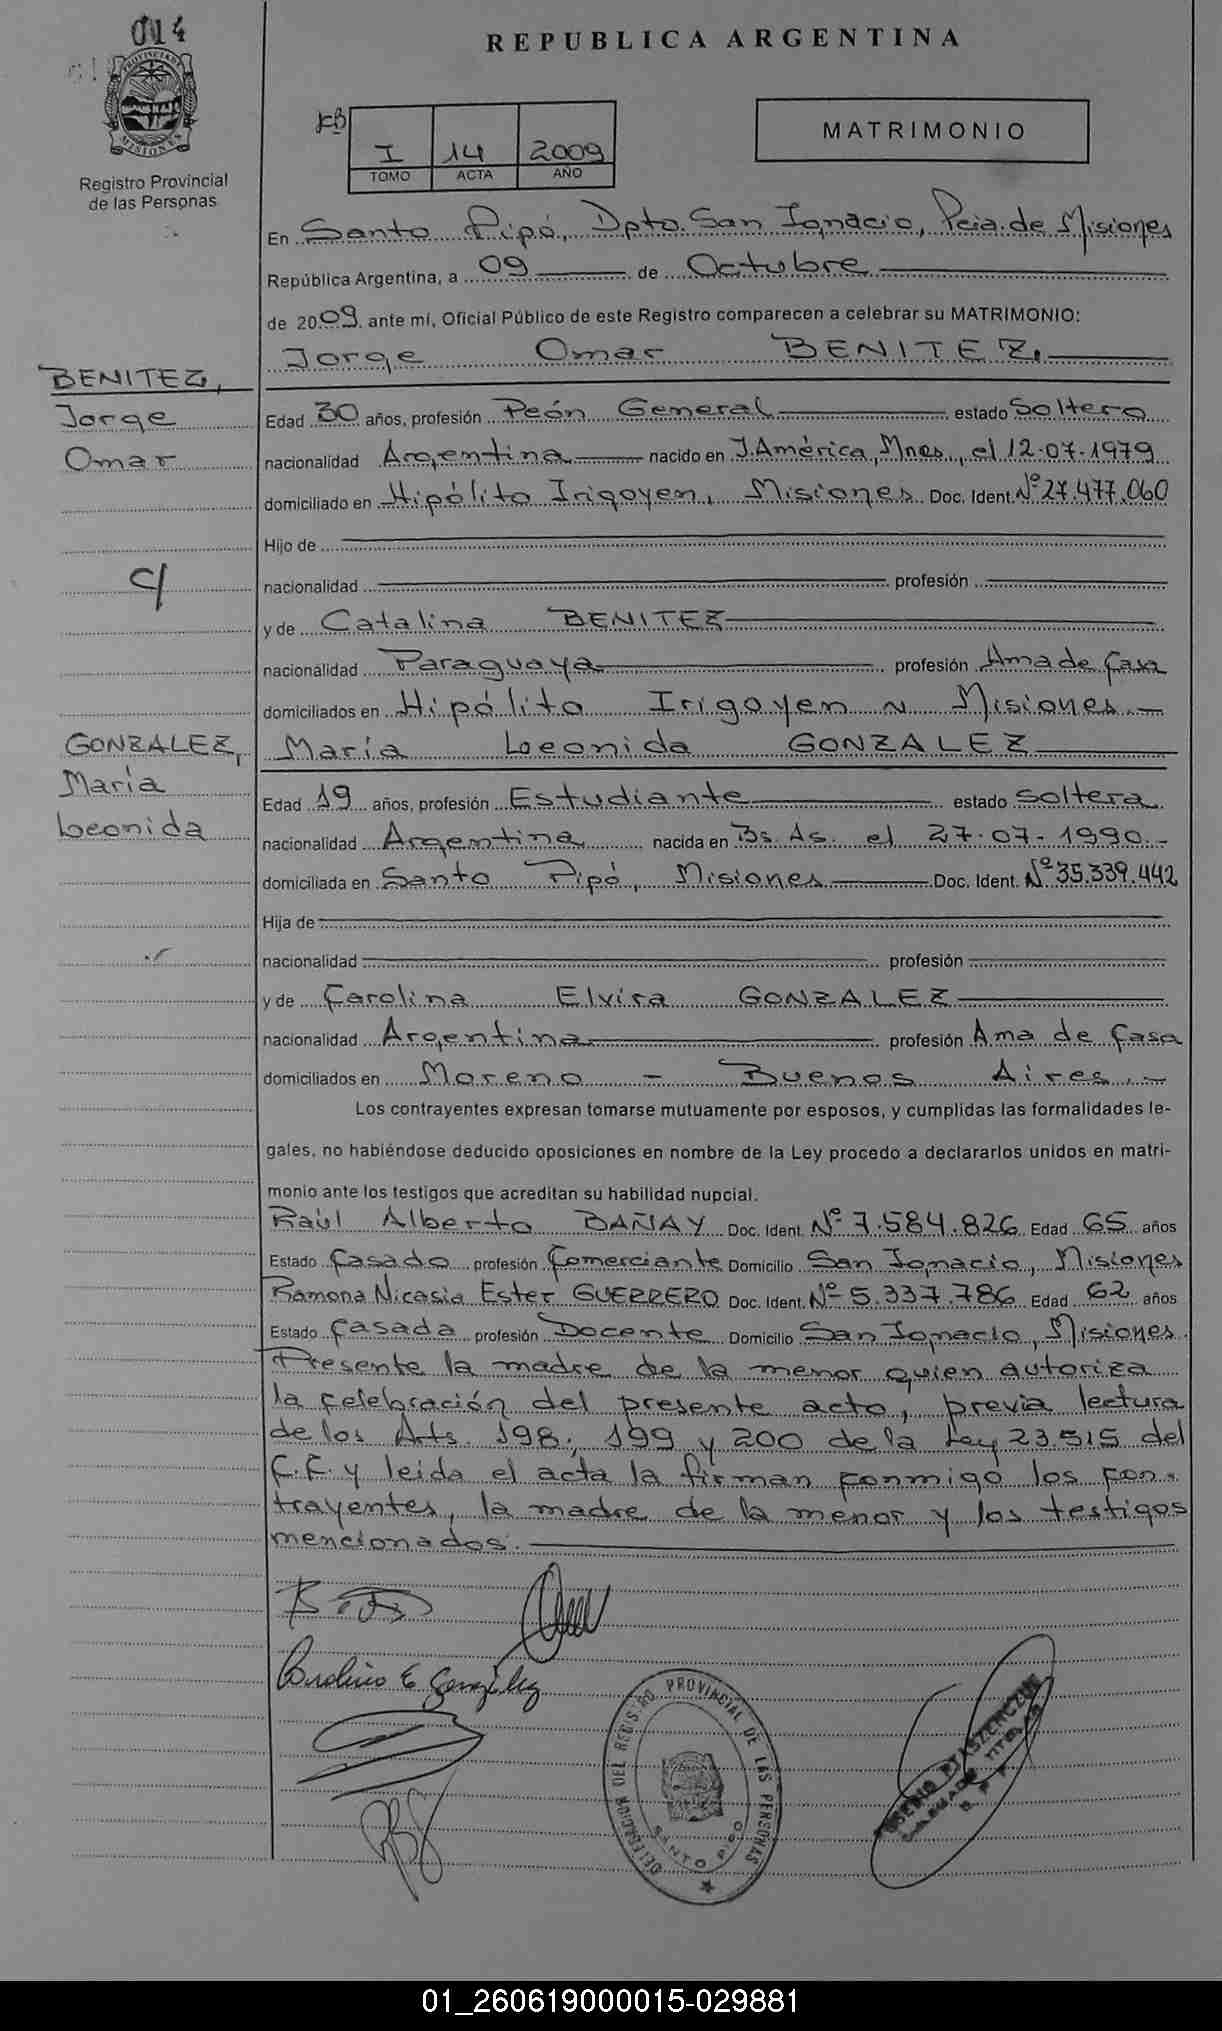 014
REPUBLICA ARGENTINA
PROVINCIA DE
MISIONES
Registro Provincial
de las Personas
I 14 2009
TOMO ACTA AÑO
MATRIMONIO
En Santo Pipó, Dpto. San Ignacio, Pcia. de Misiones
República Argentina, a 09 de Octubre
de 2009 ante mí, Oficial Público de este Registro comparecen a celebrar su MATRIMONIO:
Jorge Omar BENITEZ.
BENITEZ,
Jorge
Omar
Edad 30 años, profesión Peón General estado Soltero
nacionalidad Argentina nacido en J. América, Mnes., el 12-07-1979
domiciliado en Hipólito Irigoyen, Misiones Doc. Ident. Nº 27.477.060
Hijo de
c/
nacionalidad profesión
y de Catalina BENITEZ
nacionalidad Paraguaya profesión Ama de Casa
domiciliados en Hipólito Irigoyen ~ Misiones.-
GONZALEZ,
María
Leonida
María Leonida GONZALEZ
Edad 19 años, profesión Estudiante estado Soltera
nacionalidad Argentina nacida en Bs. As. el 27-07-1990.-
domiciliada en Santo Pipó, Misiones Doc. Ident. Nº 35.339.442
Hija de
nacionalidad profesión
y de Carolina Elvira GONZALEZ
nacionalidad Argentina profesión Ama de Casa
domiciliados en Moreno - Buenos Aires.-
Los contrayentes expresan tomarse mutuamente por esposos, y cumplidas las formalidades le-
gales, no habiéndose deducido oposiciones en nombre de la Ley procedo a declararlos unidos en matri-
monio ante los testigos que acreditan su habilidad nupcial.
Raúl Alberto BAÑAY Doc. Ident. Nº 7.584.826 Edad 65 años
Estado Casado profesión Comerciante Domicilio San Ignacio, Misiones
Ramona Nicasia Ester GUERRERO Doc. Ident. Nº 5.337.786 Edad 62 años
Estado Casada profesión Docente Domicilio San Ignacio, Misiones.
Presente la madre de la menor quien autoriza
la celebración del presente acto, previa lectura
de los Arts. 198; 199 y 200 de la Ley 23.515 del
C.C. y leida el acta la firman conmigo los con-
trayentes, la madre de la menor y los testigos
mencionados.
Carolina E González
DELEGACION DEL REGISTRO PROVINCIAL DE LAS PERSONAS
SANTO PIPO
01_260619000015-029881